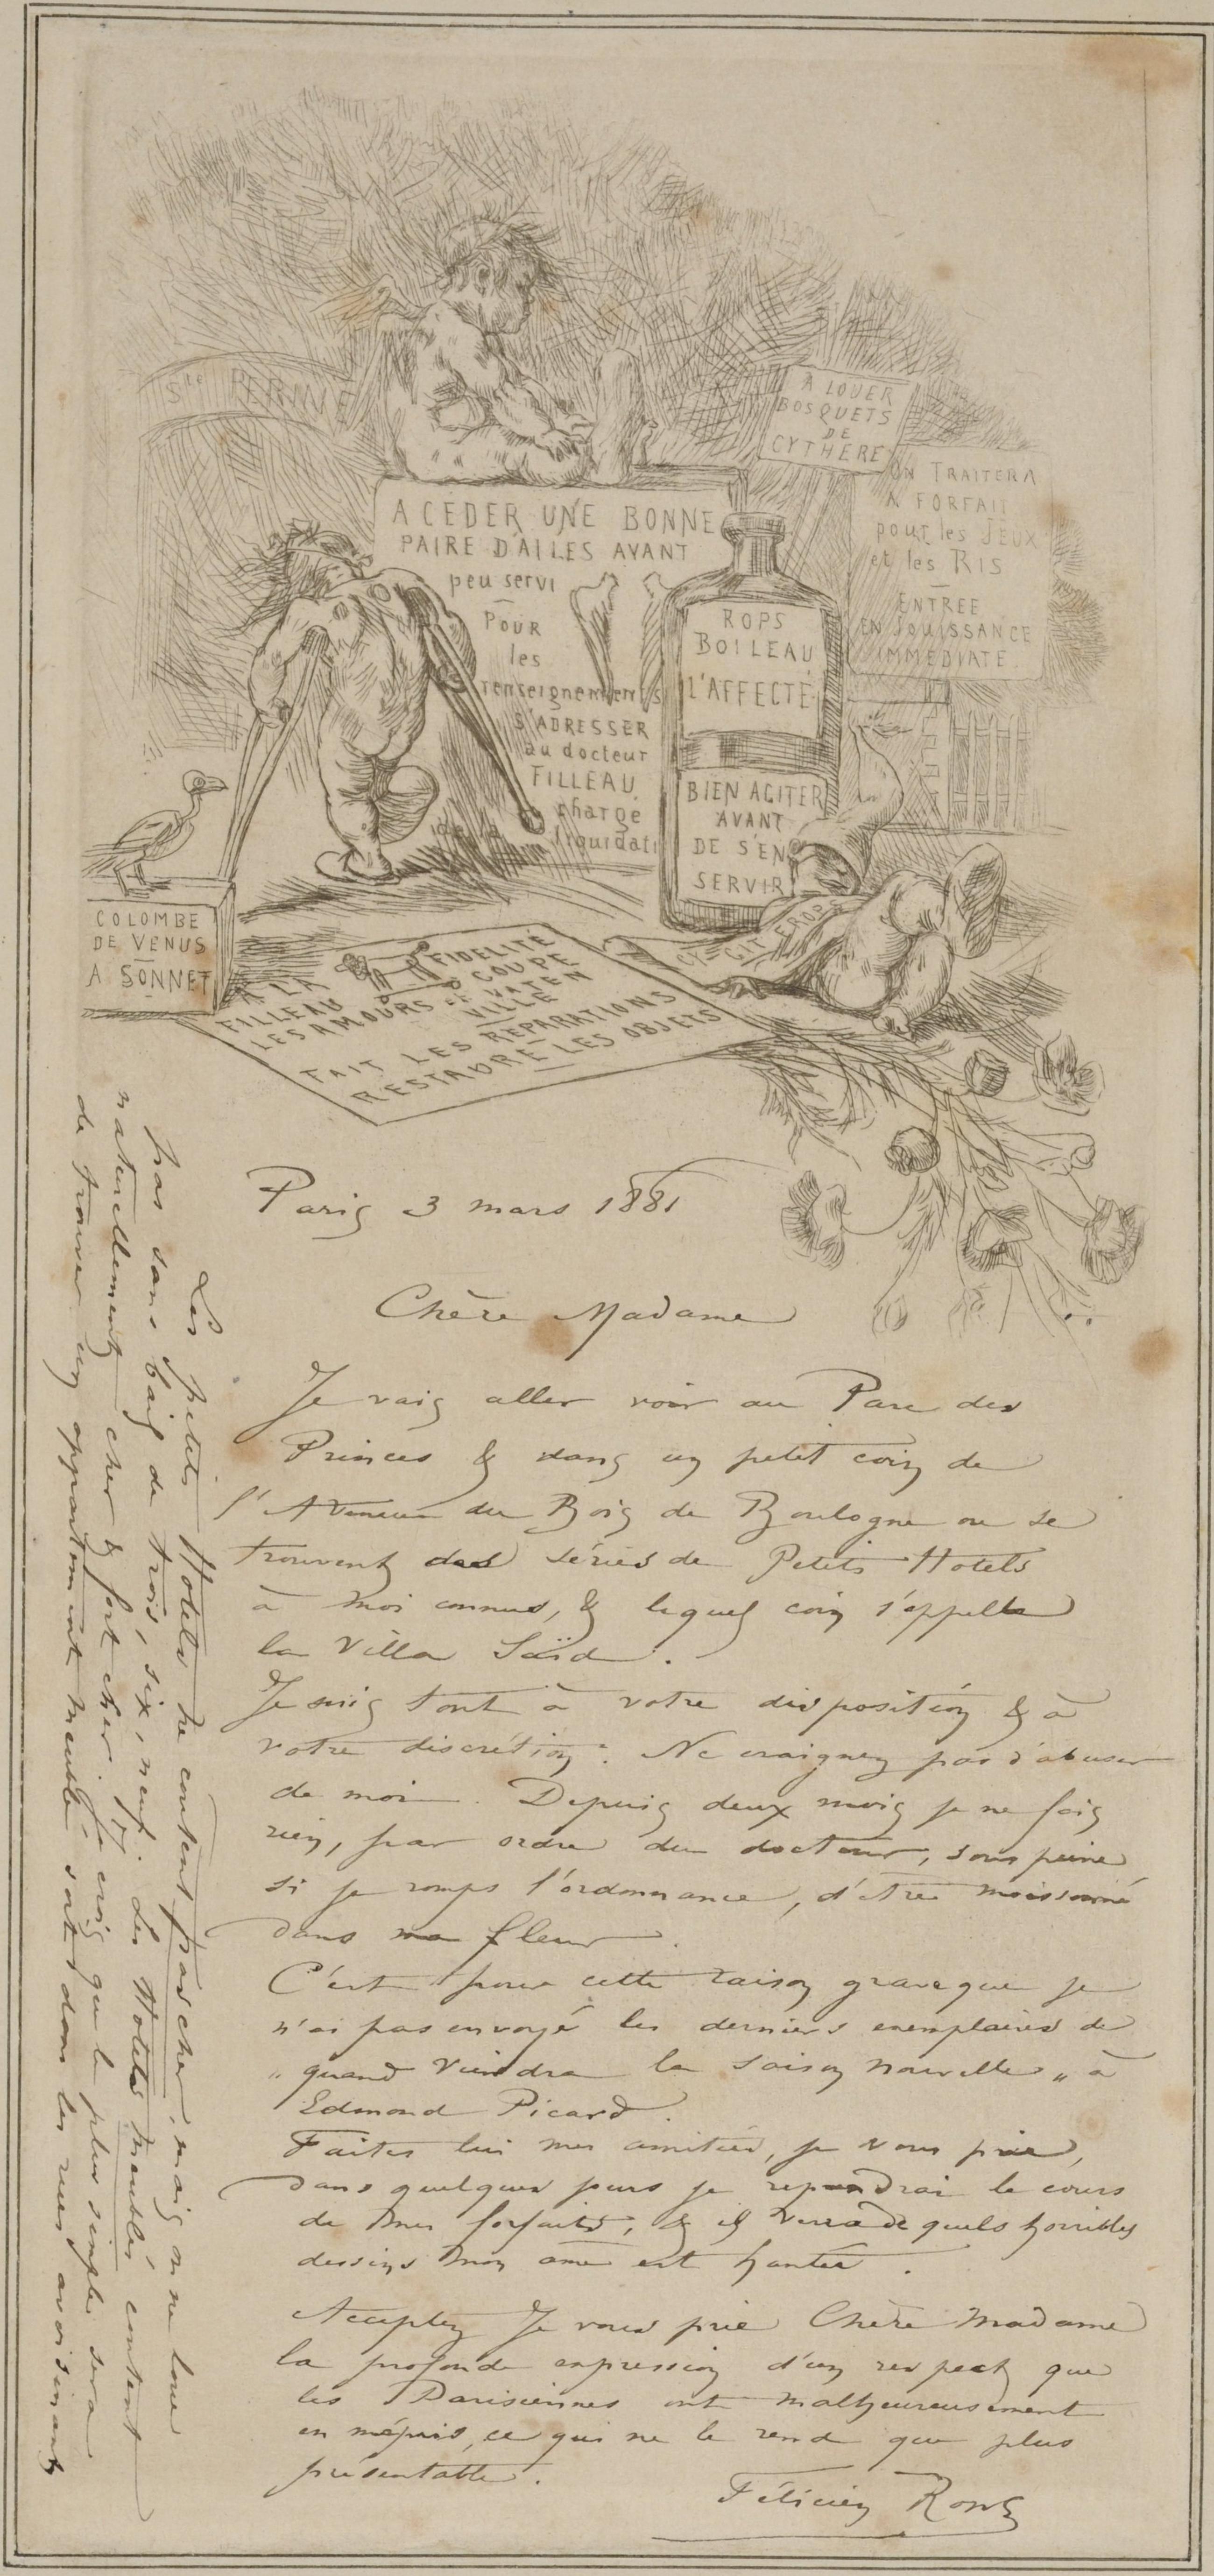 Ste PERINE
A LOUER
BOSQUETS
DE
CYTHÈRE
ON TRAITERA
A FORFAIT
pour les JEUX
et les RIS
ENTREE
EN JOUISSANCE
IMMEDIATE.
A CEDER UNE BONNE
PAIRE D'AILES AYANT
peu servi
POUR
les
renseignements
S'ADRESSER
au docteur
FILLEAU
chargé
de la liquidati
ROPS
BOILEAU
L'AFFECTÉ
BIEN AGITER
AVANT
DE S'EN
SERVIR
COLOMBE
DE VENUS
A SONNET
A LA FIDELITE
FILLEAU COUPE
LES AMOURS ET VA T EN
VILLE
FAIT LES REPARATIONS
RESTAURE LES OBJETS
CY GIT EROPS
Paris 3 mars 1881
Chère Madame
Je vais aller voir au Parc des
Princes & dans un petit coin de
l'Avenue du Bois de Boulogne ou se
trouvent des séries de Petits Hotels
à moi connus, & lequel coin s'appelle
la Villa Saïd.
Je suis tout à votre disposition & à
votre discrétion. Ne craignez pas d'abuser
de moi. Depuis deux mois je ne fais
rien, par ordre du docteur, sous peine
si je romps l'ordonnance, d'être moissonné
dans ma fleur.
C'est pour cette raison grave que je
n'ai pas envoyé les derniers exemplaires de
„quand viendra la saison nouvelle„ à
Edmond Picard.
Faites lui mes amitiés, je vous prie,
dans quelques jours je reprendrai le cours
de mes forfaits, & il verra de quels horribles
dessins mon âme est hantée.
Acceptez Je vous prie Chère Madame
la profonde expression d'un respect que
les Parisiennes ont malheureusement
en mépris, ce qui ne le rend que plus
présentable.
Félicien Rops
Les petits Hotels ne coutent pas cher, mais on ne loue
pas sans bail de trois, six, neuf. Les Hotels meublés coutent
naturellement cher & fort cher. Je crois que le plus simple sera
de trouver un appartement meublé, soit dans les rues avoisinants